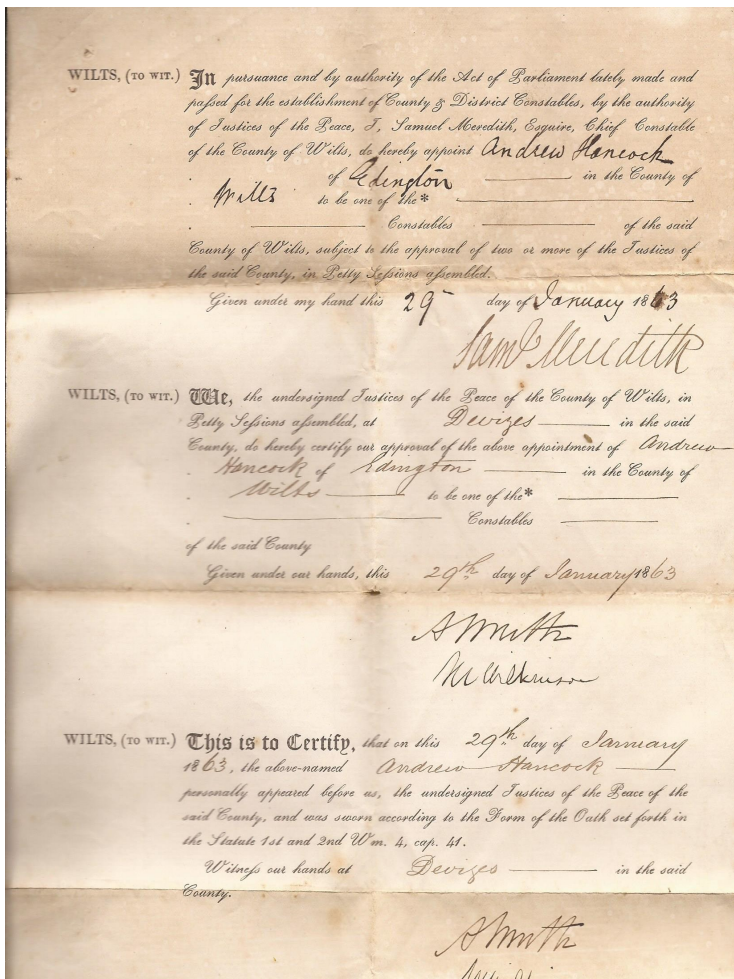 WILTS, (TO WIT.) In pursuance and by authority of the Act of Parliament lately made and
passed for the establishment of County & District Constables, by the authority
of Justices of the Peace, I, Samuel Meredith, Esquire, Chief Constable
of the County of Wilts, do hereby appoint Andrew Hancock
of Edington in the County of
Wilts to be one of the*
Constables of the said
County of Wilts, subject to the approval of two or more of the Justices of
the said County, in Petty Sessions assembled.
Given under my hand this 29 day of January 1863
Saml Meredith
WILTS, (TO WIT.) We, the undersigned Justices of the Peace of the County of Wilts, in
Petty Sessions assembled, at Devizes in the said
County, do hereby certify our approval of the above appointment of Andrew
Hancock of Edington in the County of
Wilts to be one of the*
Constables
of the said County
Given under our hands, this 29th day of January 1863
WILTS, (TO WIT.) This is to Certify, that on this 29th day of January
1863, the above-named Andrew Hancock
personally appeared before us, the undersigned Justices of the Peace of the
said County, and was sworn according to the Form of the Oath set forth in
the Statute 1st and 2nd Wm. 4, cap. 41.
Witness our hands at Devizes in the said
County.